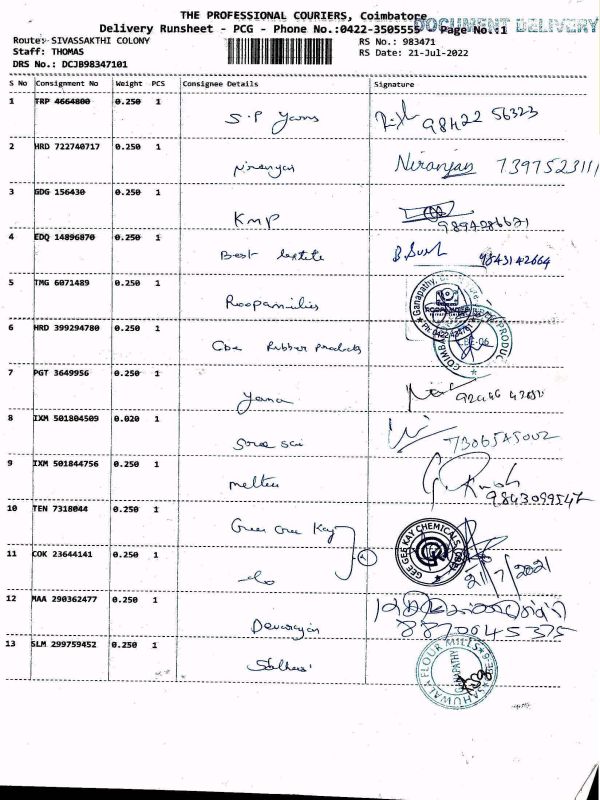 THE PROFESSIONAL COURIERS, Coimbatore
DOCUMENT DELIVERY
Delivery Runsheet - PCG - Phone No.:0422-3505555 Page No.:1
Route: SIVASSAKTHI COLONY RS No.: 983471
Staff: THOMAS RS Date: 21-Jul-2022
DRS No.: DCJB98347101
S No Consignment No Weight PCS Consignee Details Signature
1 TRP 4664800 0.250 1
S.P Yarns 98422 56323
2 HRD 722740717 0.250 1
Niranjan Niranjan 7397523111
3 GDG 156430 0.250 1
KMP 9894286671
4 EDQ 14896870 0.250 1
Best 9843142664
5 TMG 6071489 0.250 1
Roopamilies
Ganapathy
6 HRD 399294780 0.250 1
Cbe Rubber Products
7 PGT 3649956 0.250 1
8 IXM 501804509 0.020 1
7306545002
9 IXM 501844756 0.250 1
9843099547
10 TEN 7318044 0.250 1
Gee Gee Kay
GEE GEE KAY CHEMICALS
11 COK 23644141 0.250 1
do 21/7/2021
12 MAA 290362477 0.250 1
Devarajan 8870045375
13 SLM 299759452 0.250 1
SAHUWALA FLOUR MILLS
GANAPATHY